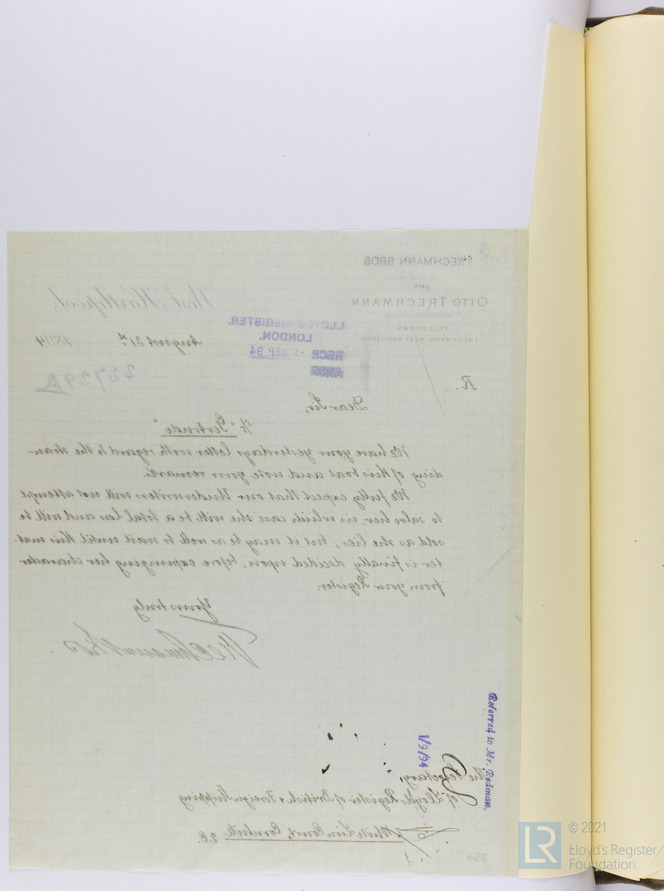 TRECHMANN BROS
LATE
OTTO TRECHMANN
TELEGRAMS
TRECHMANN, WEST HARTLEPOOL
West Hartlepool,
August 31st 1894
LLOYD'S REGISTER.
LONDON.
RECD 1 SEP 94
ANSD
R.
Dear Sir,
"Gertrude"
We have your yesterdays letter with regard to the stan-
ding of this boat and note your remarks.
We fully expect that our Underwriters will not attempt
to salve her in which case she will be a total loss and will be
sold as she lies, but it may be as well to wait until this mat-
ter is finally decided upon, before expunging her character
from your Register.
Yours truly
Trechmann Bros.
Referred to Mr. Bodman.
1/9/94
The Secretary,
of Lloyd's Register of British & Foreign Shipping
White Lion Court, Cornhill E.C.
© 2021
LR
Lloyd's Register
Foundation